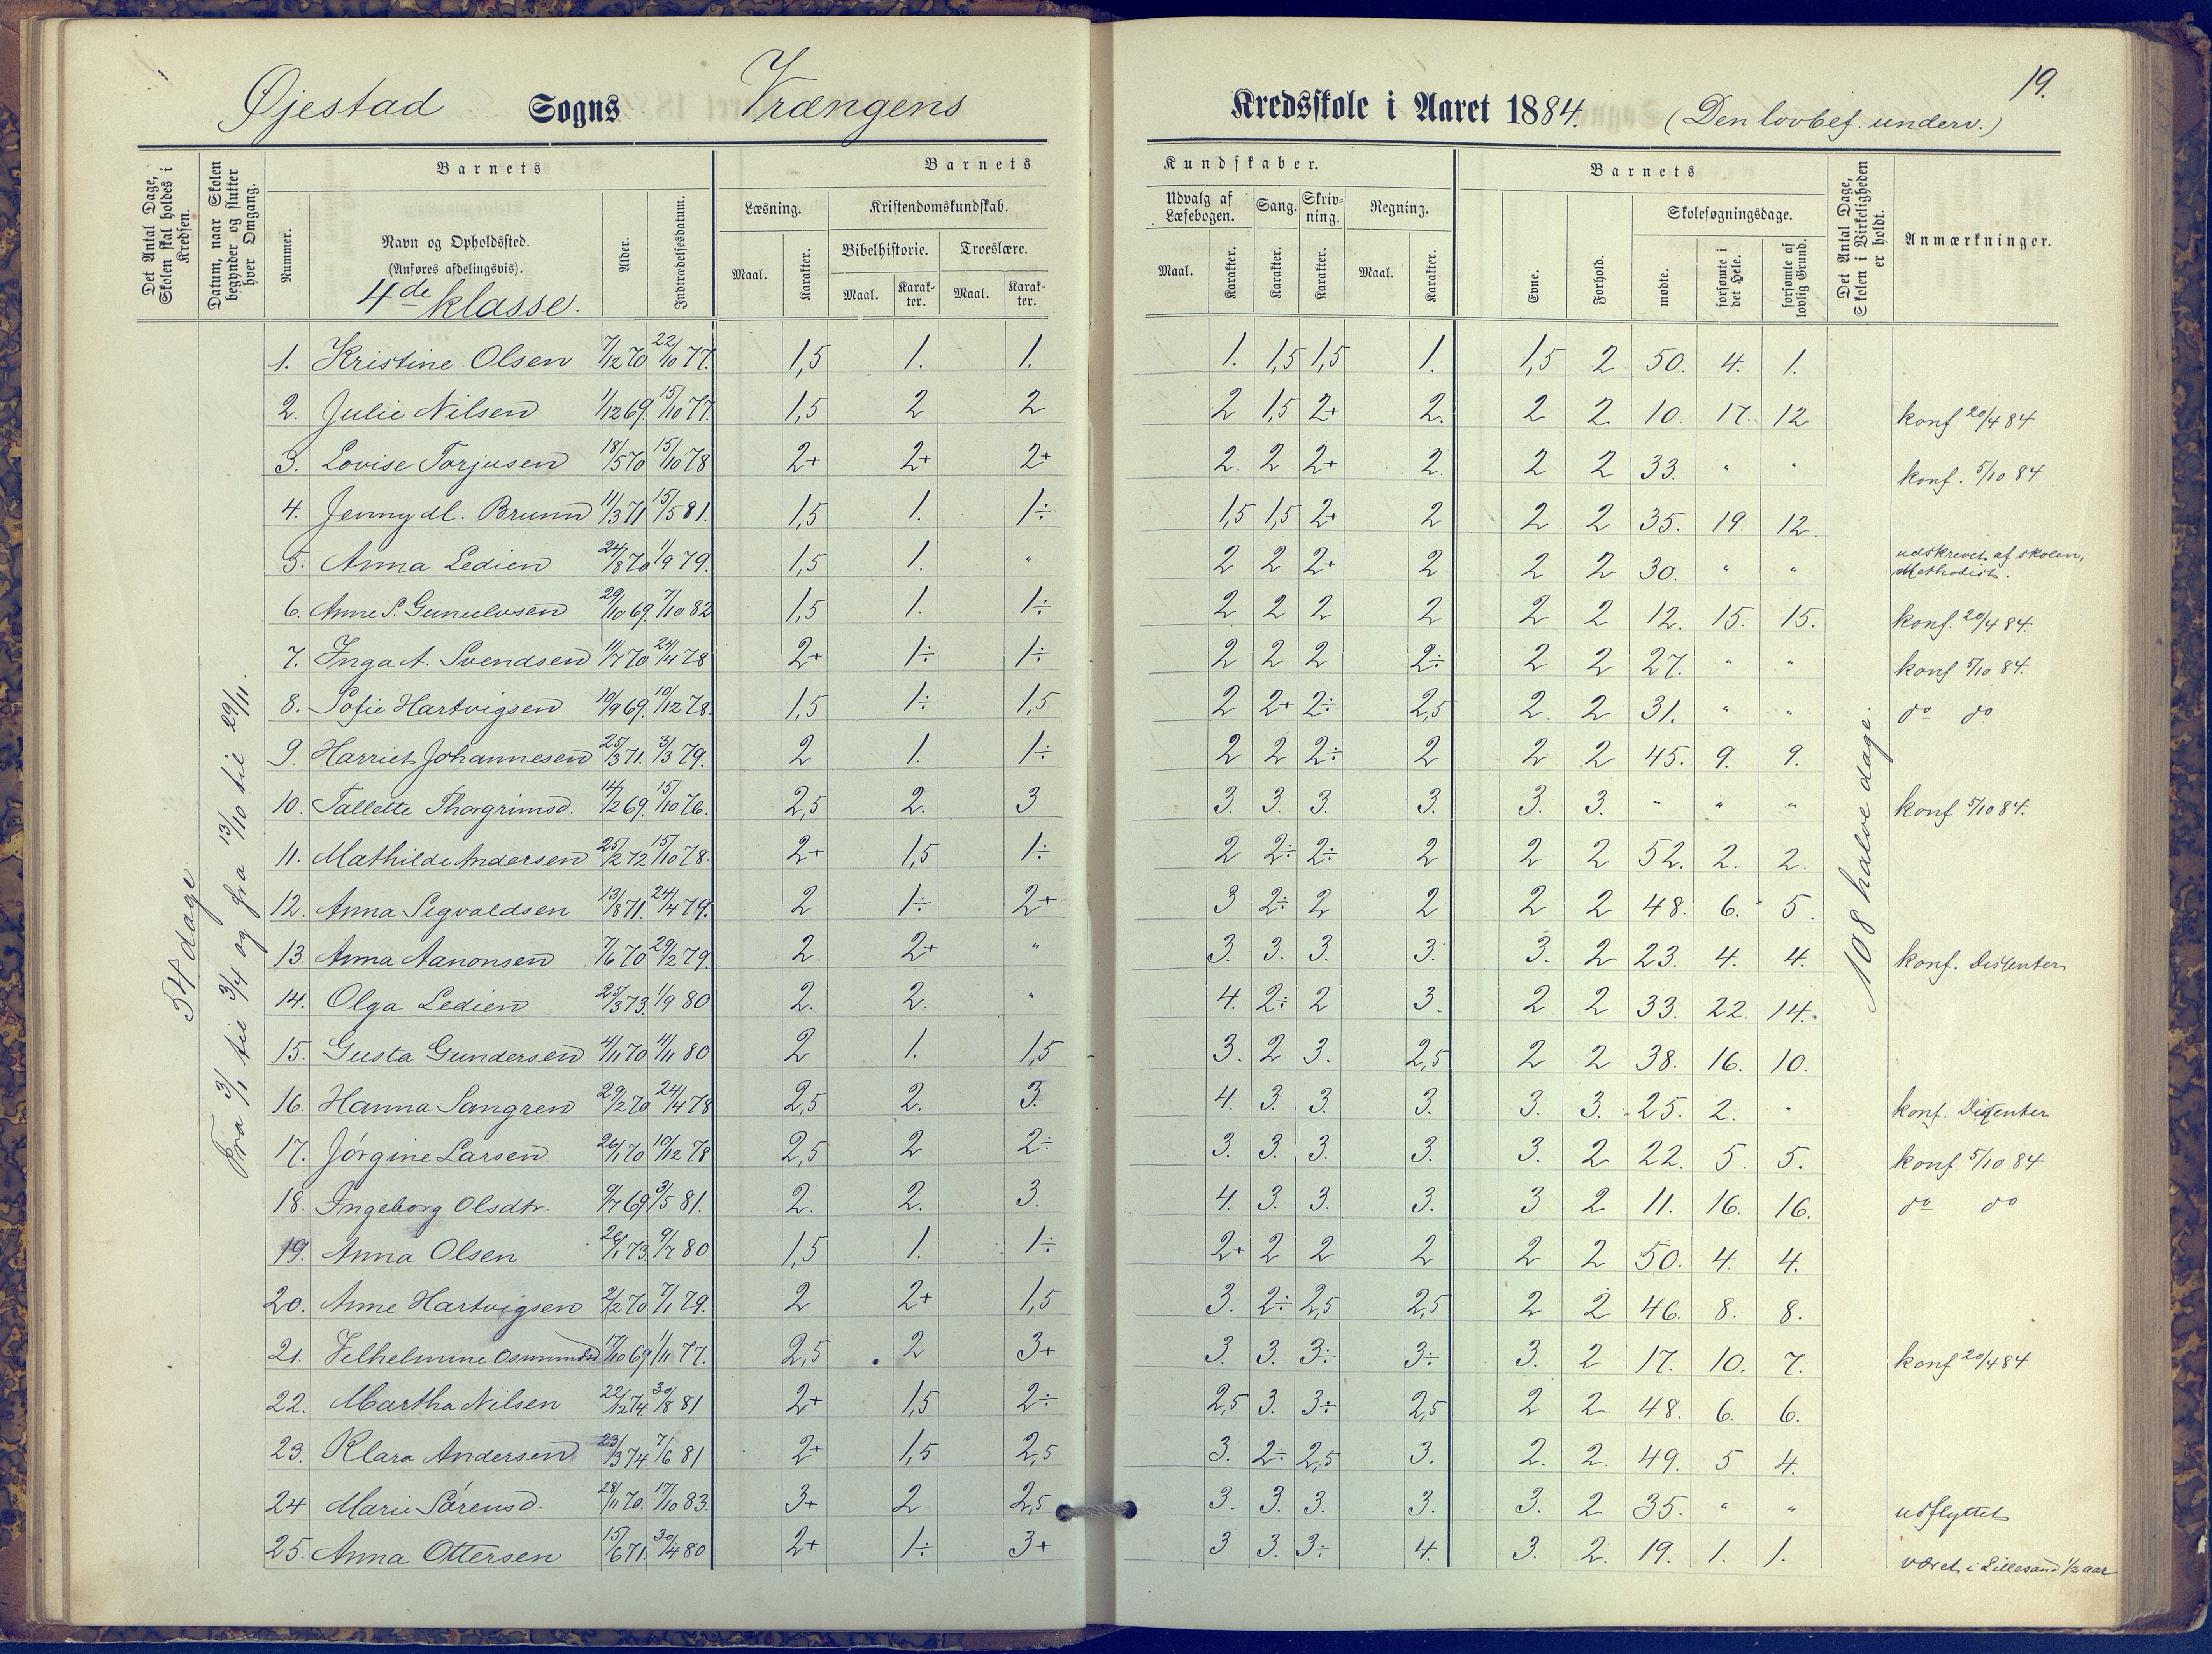 19.
Øjestad Sogns Vrængens Kredsskole i Aaret 1884. (Den lovbef. underv.)
Det Antal Dage, Skolen skal holdes i Kredsen.
Datum, naar Skolen begynder og slutter hver Omgang.
Barnets
Nummer.
Navn og Opholdssted.
(Anføres afdelingsvis).
4de klasse.
Alder.
Indtrædelsesdatum.
Barnets Kundskaber.
Læsning. Kristendomskundskab. Udvalg af Læsebogen. Sang. Skrivning. Regning.
Bibelhistorie. Troeslære.
Maal. Karakter. Maal. Karakter. Maal. Karakter. Maal. Karakter. Karakter. Karakter. Maal. Karakter.
Barnets
Evne. Forhold. Skolesøgningsdage.
mødte. forsømte i det Hele. forsømte af lovlig Grund.
Det Antal Dage, Skolen i Virkeligheden er holdt.
Anmærkninger.
54 dage
Fra 3/1 til 3/4 og fra 13/10 til 29/11.
108 halve dage.
1. Kristine Olsen 7/12 70 22/10 77. 1,5 1. 1. 1. 1,5 1,5 1. 1,5 2 50. 4. 1.
2. Julie Nilsen 1/12 69. 15/10 77. 1,5 2 2 2 1,5 2+ 2. 2 2 10. 17. 12 konf 20/4 84
3. Lovise Torjusen 18/5 70 15/10 78 2+ 2+ 2+ 2. 2 2+ 2. 2 2 33. " " konf. 5/10 84
4. Jenny M. Brunn 11/3 71 15/5 81. 1,5 1. 1÷ 1,5 1,5 2+ 2 2 2 35. 19. 12.
5. Anna Ledien 24/8 70 1/9 79. 1,5 1. " 2 2 2+ 2 2 2 30. " " udskrevet af skolen, Methodist.
6. Anne S. Gunulvsen 29/10 69. 7/10 82 1,5 1. 1÷ 2 2 2 2 2 2 12. 15. 15. konf. 20/4 84.
7. Inga A. Svendsen 11/7 70 24/4 78 2+ 1÷ 1÷ 2 2 2 2÷ 2 2 27. " " konf 5/10 84.
8. Sofie Hartvigsen 10/9 69. 10/12 78. 1,5 1÷ 1,5 2 2+ 2÷ 2,5 2. 2 31. " " do do
9. Harriet Johannesen 25/3 71. 3/3 79. 2 1. 1÷ 2 2 2÷ 2 2 2 45. 9. 9.
10. Tallette Thorgrimsd. 14/2 69. 15/10 76. 2,5 2. 3 3. 3. 3. 3. 3. 3. " " " konf 5/10 84.
11. Mathilde Andersen 25/2 72 15/10 78. 2+ 1,5 1÷ 2 2÷ 2÷ 2 2 2 52. 2. 2.
12. Anna Sigvaldsen 13/8 71. 24/4 79. 2 1÷ 2+ 3 2÷ 2 2 2 2 48. 6. 5.
13. Anna Aanonsen 7/6 70 29/2 79. 2. 2+ " 3. 3. 3. 3. 3. 2 23. 4. 4. konf. Dissenter
14. Olga Ledien 25/3 73. 1/9 80 2. 2. " 4. 2÷ 2 3. 2 2 33. 22. 14.
15. Gusta Gundersen 4/11 70 4/11 80 2 1. 1,5 3. 2 3. 2,5 2 2 38. 16. 10.
16. Hanna Sangren 29/2 70 24/4 78 2,5 2. 3. 4. 3. 3. 3. 3. 3. 25. 2. " konf. Dissenter
17. Jórgine Larsen 26/1 70 10/12 78 2,5 2 2÷ 3. 3. 3. 3. 3. 2 22. 5. 5. konf 5/10 84
18. Ingeborg Olsdtr. 9/7 69 3/5 81. 2. 2. 3. 4. 3. 3. 3. 3 2 11. 16. 16. do do
19. Anna Olsen 26/1 73. 9/7 80 1,5 1. 1÷ 2+ 2 2 2 2 2 50. 4. 4.
20. Anne Hartvigsen 2/2 70 7/1 79. 2 2+ 1,5 3. 2÷ 2,5 2,5 2 2 46. 8. 8.
21. Vilhelmine Osmundsd 17/10 69 1/11 77. 2,5 2 3+ 3. 3. 3÷ 3÷ 3. 2 17. 10. 7. konf 20/4 84
22. Martha Nilsen 22/12 74. 30/8 81 2+ 1,5 2÷ 2,5 3. 3÷ 2,5 2 2 48. 6. 6.
23. Klara Andersen 23/3 74 7/6 81 2+ 1,5 2,5 3. 2÷ 2,5 3. 2. 2. 49. 5 4.
24 Marie Sórensd. 28/11 70. 17/10 83. 3+ 2 2,5 3. 3. 3. 3. 3. 2 35. " " udflyttet
25. Anna Ottersen 15/6 71. 30/4 80 2+ 1÷ 3+ 3 3. 3÷ 4. 3. 2. 19. 1. 1. været i Lillesand 1/2 aar